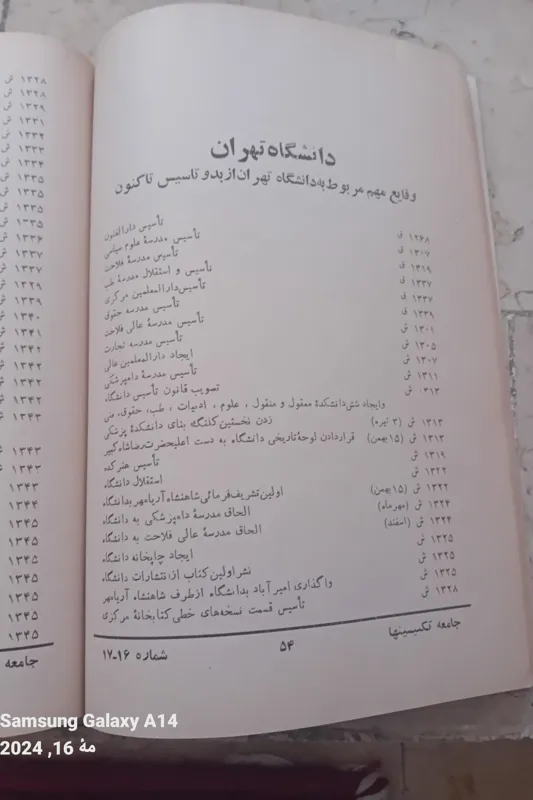 دانشگاه تهران
وقایع مهم مربوط به دانشگاه تهران از بدو تاسیس تاکنون
۱۲۶۸ ق تأسیس دارالفنون
۱۳۰۷ ق تأسیس مدرسهٔ علوم سیاسی
۱۳۱۹ ق تأسیس مدرسهٔ فلاحت
۱۳۳۷ ق تأسیس و استقلال مدرسهٔ طب
۱۳۳۷ ق تأسیس دارالمعلمین مرکزی
۱۳۳۹ ق تأسیس مدرسه حقوق
۱۳۰۱ ش تأسیس مدرسهٔ عالی فلاحت
۱۳۰۵ ش تأسیس مدرسه تجارت
۱۳۰۷ ش ایجاد دارالمعلمین عالی
۱۳۱۱ ش تأسیس مدرسهٔ دامپزشکی
۱۳۱۳ ش تصویب قانون تأسیس دانشگاه
وایجاد شش دانشکدهٔ معقول و منقول ، علوم ، ادبیات ، طب، حقوق، فنی
۱۳۱۳ ش (۳ تیره) زدن نخستین کلنگ بنای دانشکدهٔ پزشکی
۱۳۱۳ ش (۱۵ بهمن) قراردادن لوحهٔ تاریخی دانشگاه به دست اعلیحضرت رضاشاه کبیر
۱۳۱۹ ش تأسیس هنرکده
۱۳۲۲ ش استقلال دانشگاه
۱۳۲۲ ش (۱۵ بهمن) اولین تشریف فرمائی شاهنشاه آریامهر بدانشگاه
۱۳۲۴ ش (مهرماه) الحاق مدرسهٔ دامپزشکی به دانشگاه
۱۳۲۴ ش (اسفند) الحاق مدرسهٔ عالی فلاحت به دانشگاه
۱۳۲۵ ش ایجاد چاپخانه دانشگاه
۱۳۲۵ ش نشر اولین کتاب از انتشارات دانشگاه
۱۳۲۵ ش واگذاری امیرآباد بدانشگاه از طرف شاهنشاه آریامهر
۱۳۲۸ ش تأسیس قسمت نسخه‌های خطی کتابخانهٔ مرکزی
جامعه تکنیسینها ۵۴ شماره ۱۶-۱۷
۱۳۲۸ ش
۱۳۲۸ ش
۱۳۲۹ ش
۱۳۳۱ ش
۱۳۳۲ ش
۱۳۳۳ ش
۱۳۳۴ ش
۱۳۳۵ ش
۱۳۳۵ ش
۱۳۳۵ ش
۱۳۳۶ ش
۱۳۳۷ ش
۱۳۳۷ ش
۱۳۲۹ ش
۱۳۳۹ ش
۱۳۴۰ ش
۱۳۴۱ ش
۱۳۴۲ ش
۱۳۴۲ ش
۱۳۴۲ ش
۱۳۴۲ ش
۱۳۴۳ ش
۱۳۴۳ ش
۱۳۴۳ ش
۱۳۴۳
۱۳۴۴
۱۳۴۵
۱۳۴۵
۱۳۴۵
۱۳۴۵
۱۳۴۵
۱۳۴۵
۱۳۴۵
جامعه
Samsung Galaxy A14
2024 ,16 مهٔ